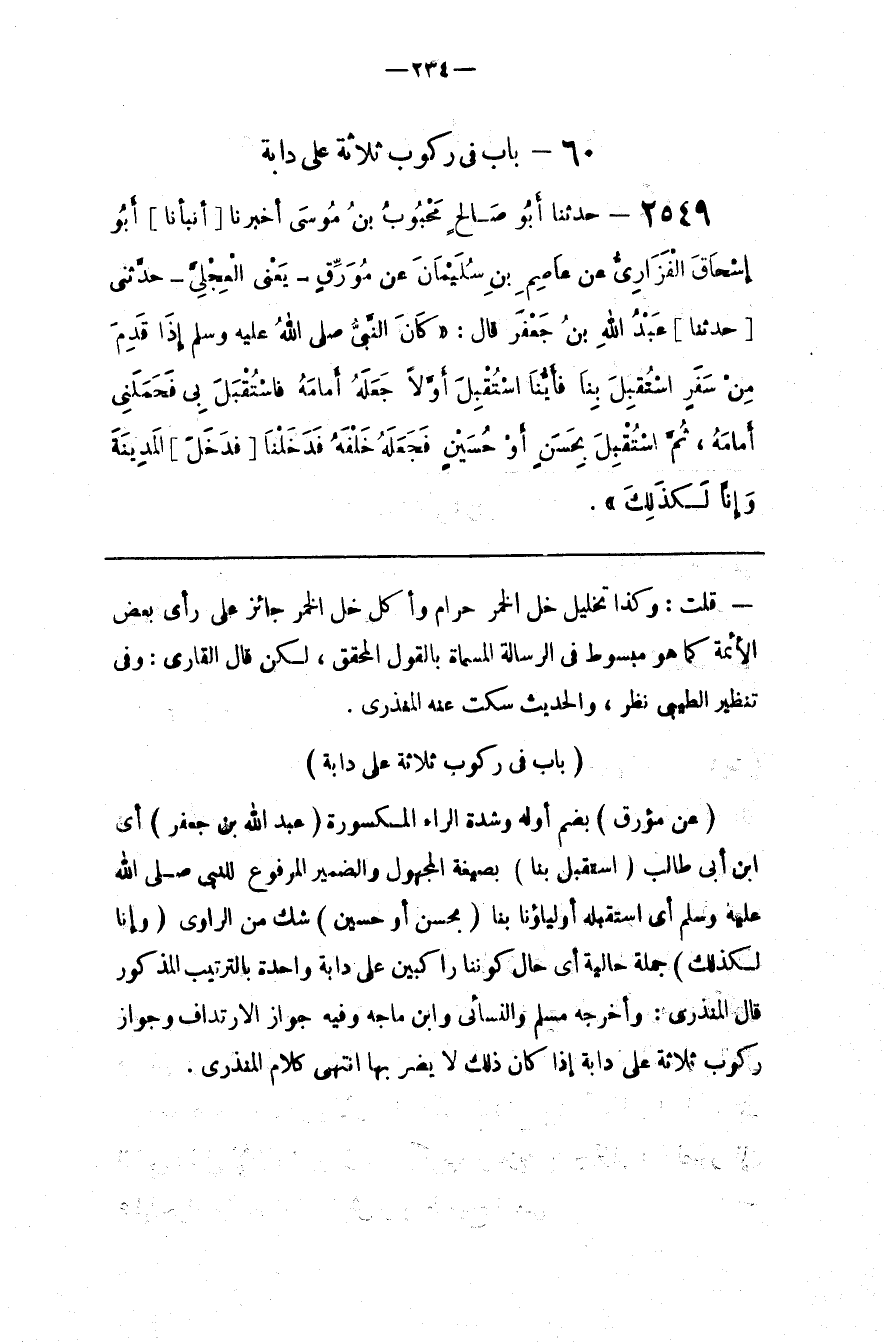 —٢٣٤—
٦٠ – باب فى ركوب ثلاثة على دابة
٢٥٤٩ – حدثنا أَبُو صَالحٍ مَحْبُوبُ بنُ مُوسَى أخبرنا [ أنبأنا ] أَبُو
إسْحَاقَ الْفَزَارِىُّ عن عاصِمِ بنِ سُلَيْمَانَ عن مُوَرِّقٍ – يَعْنى الْعِجْلِىَّ – حدَّثنى
[ حدثنا ] عَبْدُ اللهِ بنُ جَعْفَرَ قال : « كَانَ النَّبىُّ صلى اللهُ عليه وسلم إذَا قَدِمَ
مِنْ سَفَرٍ اسْتُقْبِلَ بِنَا فأَيُّنَا اسْتُقْبِلَ أوَّلاً جَعَلَهُ أَمامَهُ فاسْتُقْبَلَ بِى فَحَمَلَنِى
أمامَهُ ، ثُمَّ اسْتُقْبِلَ بِحَسَنٍ أوْ حُسَيْنٍ فَجَعَلَهُ خَلْفَهُ فَدَخَلْنَا [ فدَخَلَ ] المَدِينَةَ
وَإنَّا لَكَذَلِكَ » .
– قلت : وكذا تخليل خل الخمر حرام وأكل خل الخمر جائز على رأى بعض
الأئمة كما هو مبسوط فى الرسالة المسماة بالقول المحقق ، لكن قال القارى : وفى
تنظير الطيبى نظر ، والحديث سكت عنه المنذرى .
( باب فى ركوب ثلاثة على دابة )
( عن مؤرق ) بضم أوله وشدة الراء المكسورة ( عبد الله بن جعفر ) أى
ابن أبى طالب ( استقبل بنا ) بصيغة المجهول والضمير المرفوع للنبى صلى الله
عليه وسلم أى استقبله أولياؤنا بنا ( بحسن أو حسين ) شك من الراوى ( وإنا
لكذلك ) جملة حالية أى حال كوننا راكبين على دابة واحدة بالترتيب المذكور
قال المنذرى : وأخرجه مسلم والنسائى وابن ماجه وفيه جواز الارتداف وجواز
ركوب ثلاثة على دابة إذا كان ذلك لا يضر بها انتهى كلام المنذرى .